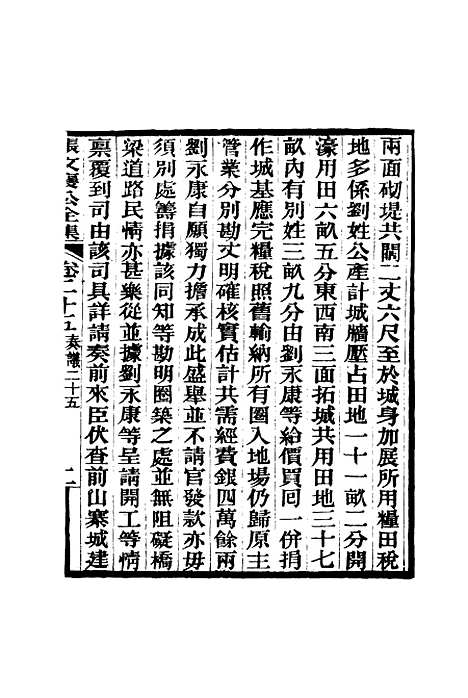 兩面砌堤共闊二丈六尺至於城身加展所用糧田稅
地多係劉姓公產計城牆壓占田地一十一畝二分開
濠用田六畝五分東西南三面拓城共用田地三十七
畝內有別姓三畝九分由劉永康等給價買囘一併捐
作城基應完糧稅照舊輸納所有圈入地場仍歸原主
管業分別勘丈明確核實估計共需經費銀四萬餘兩
劉永康自願獨力擔承成此盛舉並不請官發款亦毋
須別處籌捐據該同知等勘明圈築之處並無阻礙橋
梁道路民情亦甚樂從並據劉永康等呈請開工等情
禀覆到司由該司具詳請奏前來臣伏查前山寨城建
張文襄公全集
卷二十五奏議二十五